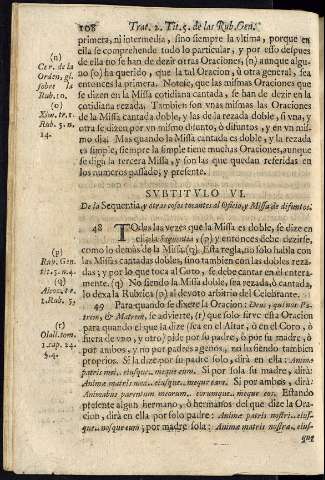 108 Trat. 2. Tit. 5. de las Rub. Gen.
primera, ni intermedia, sino siempre la vltima, porque en
ella se comprehende todo lo particular, y por esso despues
de ella no se han de dezir otras Oraciones, (n) aunque algu-
no (o) ha querido, que la tal Oracion, ò otra general, sea
entonces la primera. Notese, que las mismas Oraciones que
se dizen en la Missa cotidiana cantada, se han de dezir en la
cotidiana rezada. Tambien son vnas mismas las Oraciones
de la Missa cantada doble, y las de la rezada doble, si vna, y
otra se dizen por vn mismo difunto, ò difuntos, y en vn mis-
mo dia. Mas quando la Missa cantada es doble, y la rezada
es simple, siempre la simple tiene muchas Oraciones, aunque
se diga la tercera Missa, y son las que quedan referidas en
los numeros passado, y presente.
(n)
Cer. de la
Orden, gl.
sobre la
Rub. 10.
(o)
Xim. tr. 1.
Rub. 5. n.
14.
SUBTITULO VI.
De la Sequentia, y otras cosas tocantes al Oficio, y Missa de difuntos.
48 TOdas las vezes que la Missa es doble, se dize en
ella la Sequentia, (p) y entonces debe dezirse,
como lo demàs de la Missa. (q) Esta regla, no solo habla con
las Missas cantadas dobles, sino tambien con las dobles reza-
das; y por lo que toca al Coro, se debe cantar en el entera-
mente. (q) No siendo la Missa doble, sea rezada, ò cantada,
lo dexa la Rubrica (p) al devoto arbitrio del Celebrante.
49 Para quando se dixere la Oracion: Deus, qui nos Pa-
trem, & Matrem, se advierte, (r) que solo sirve esta Oracion
para quando el que la dize (sea en el Altar, ò en el Coro, ò
fuera de vno, y otro) pide por su padre, ò por su madre, ò
por ambos, y no por padres agenos, no siendo tambien
proprios. Si la dize por su padre solo, dirà en ella: Animæ
patris mei... eiusque... meque eum. Si por sola su madre, dirà:
Animæ matris meæ... eiusque... meque eam. Si por ambos, dirà:
Animabus parentum meorum... eorumque... meque eos. Estando
presente algun hermano, ò hermanos del que dize la Ora-
cion, dirà en ella por solo padre: Animæ patris nostri... eius-
que... nosque eum; por madre sola: Animæ matris nostræ... eius-
que
(p)
Rub. Gen.
tit. 5. n. 4.
(q)
(r)